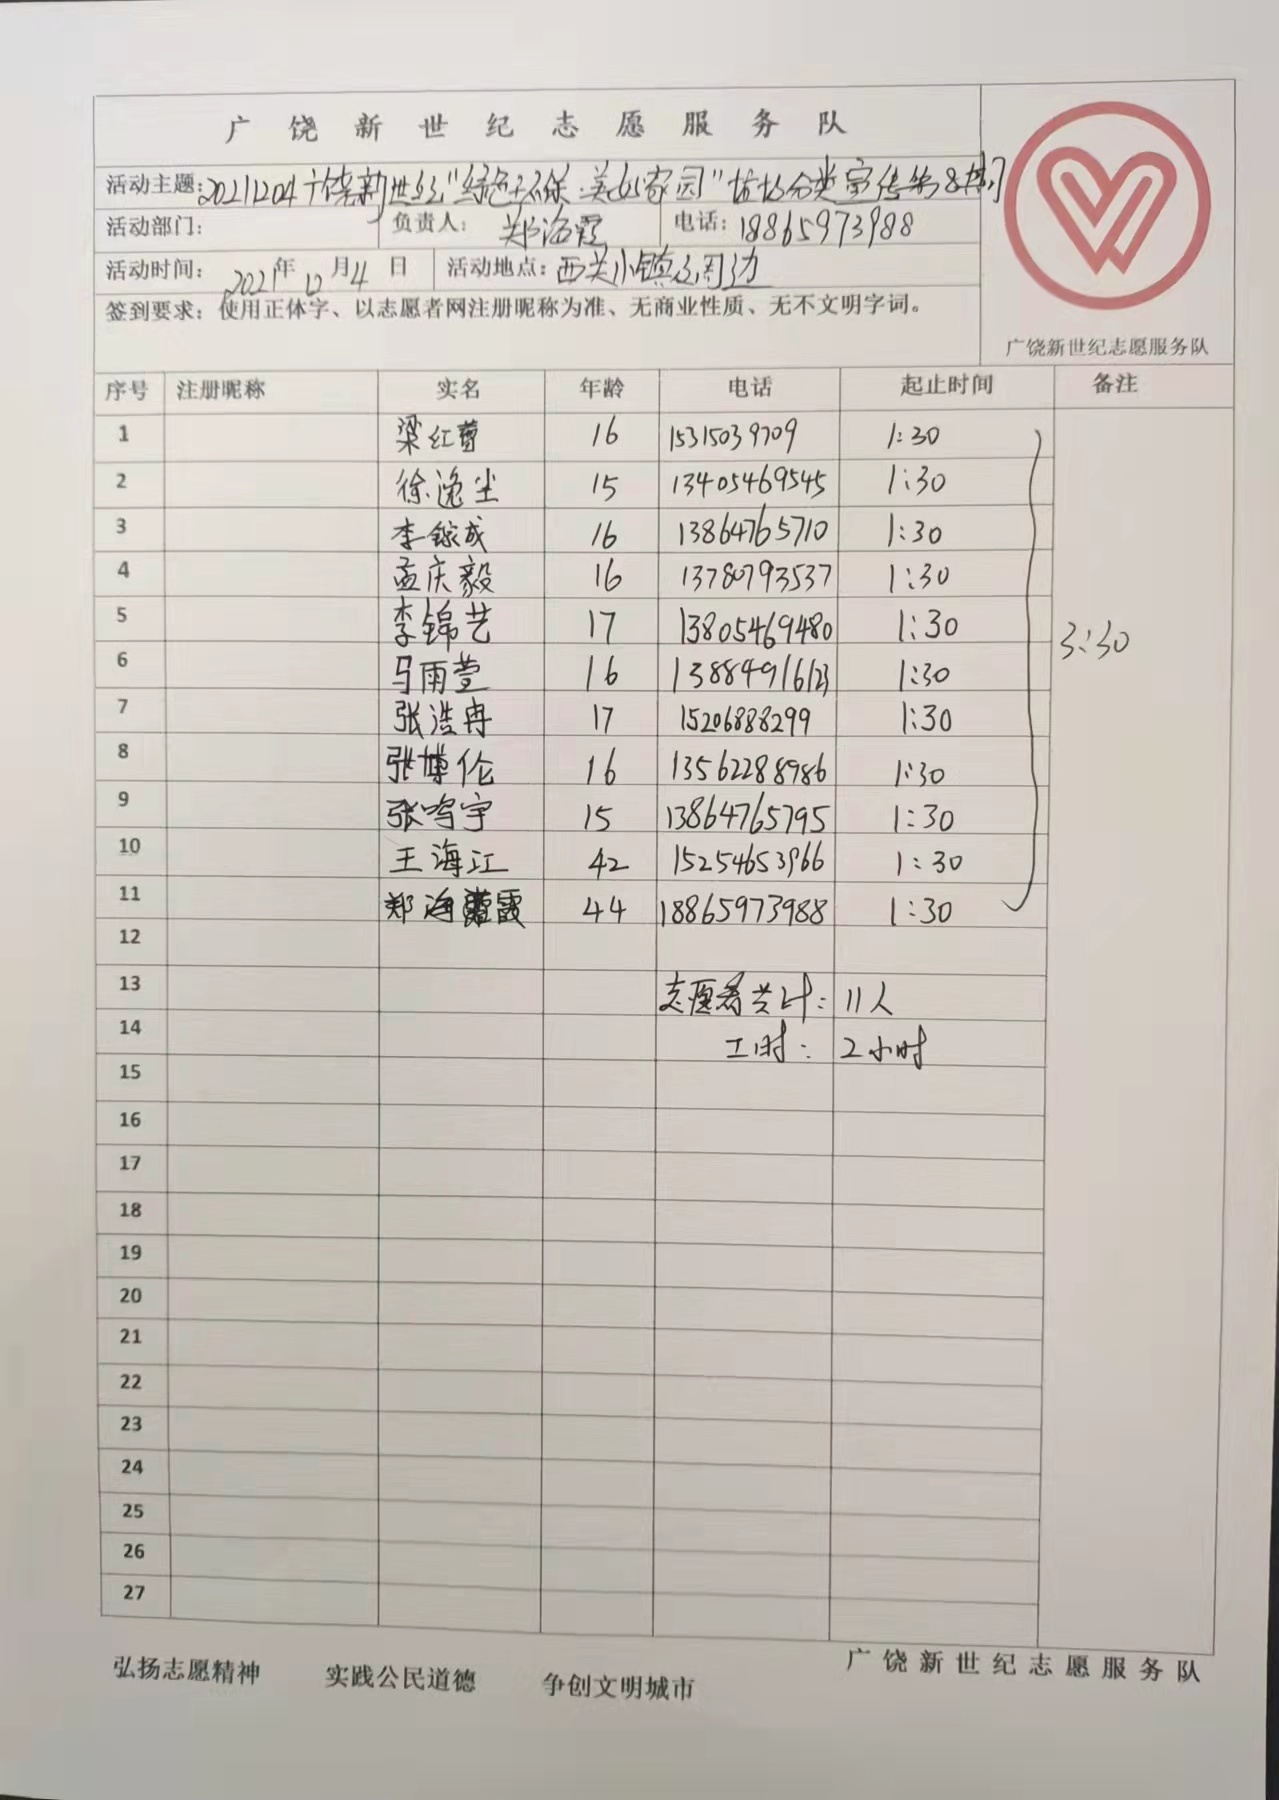 广饶新世纪志愿服务队
活动主题：20211204广饶新世纪"绿色环保·美丽家园"垃圾分类宣传第8期
活动部门： 负责人：郑海霞 电话：18865973988
活动时间：2021年12月4日 活动地点：西关小镇及周边
签到要求：使用正体字、以志愿者网注册昵称为准、无商业性质、无不文明字词。
广饶新世纪志愿服务队
序号 注册昵称 实名 年龄 电话 起止时间 备注
1 梁红 16 15315039709 1:30
2 徐逸尘 15 13405469545 1:30
3 李成 16 13864765710 1:30
4 孟庆毅 16 13780793537 1:30
5 李锦艺 17 13805469480 1:30
3:30
6 马雨萱 16 13884916123 1:30
7 张浩冉 17 15206888299 1:30
8 张博伦 16 13562288986 1:30
9 张鸣宇 15 13864765795 1:30
10 王海江 42 15254653966 1:30
11 郑海霞 44 18865973988 1:30
12
13 志愿者共计：11人
14 工时：2小时
15
16
17
18
19
20
21
22
23
24
25
26
27
弘扬志愿精神 实践公民道德 争创文明城市 广饶新世纪志愿服务队